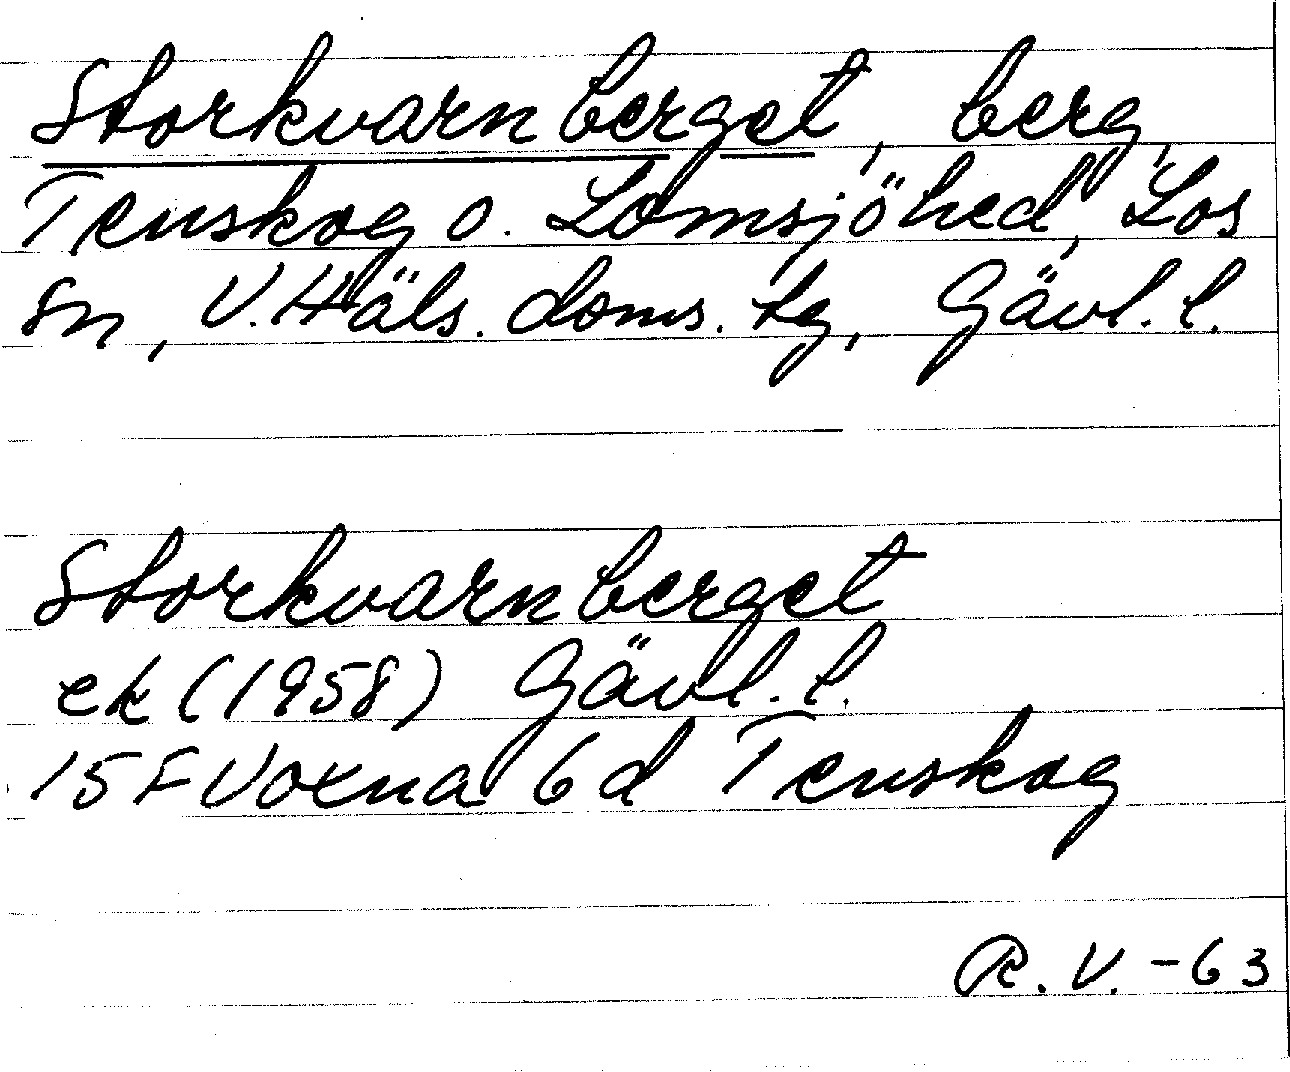 Storkvarnberget, berg,
Tenskog o. Lomsjöhed, Los
sn, V. Häls. doms. tg, Gävl. l.
Storkvarnberget
ek (1958) Gävl. l.
15 F Voxna 6 d Tenskog
R. V. - 63